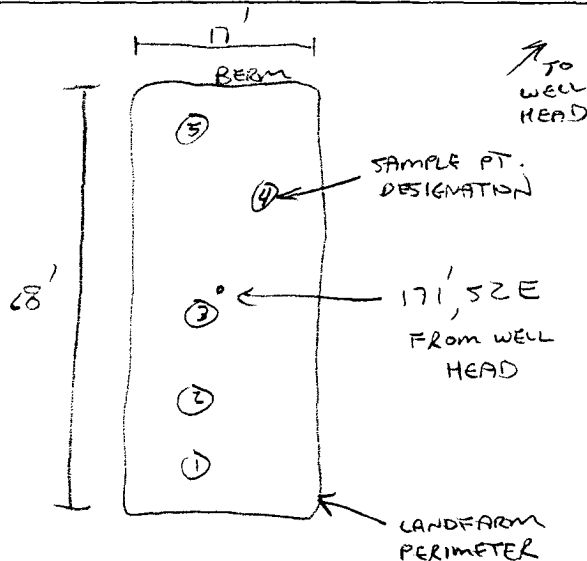 17'
BERM
TO
WELL
HEAD
5
SAMPLE PT.
DESIGNATION
4
68'
171', S2E
FROM WELL
HEAD
3
2
1
LANDFARM
PERIMETER